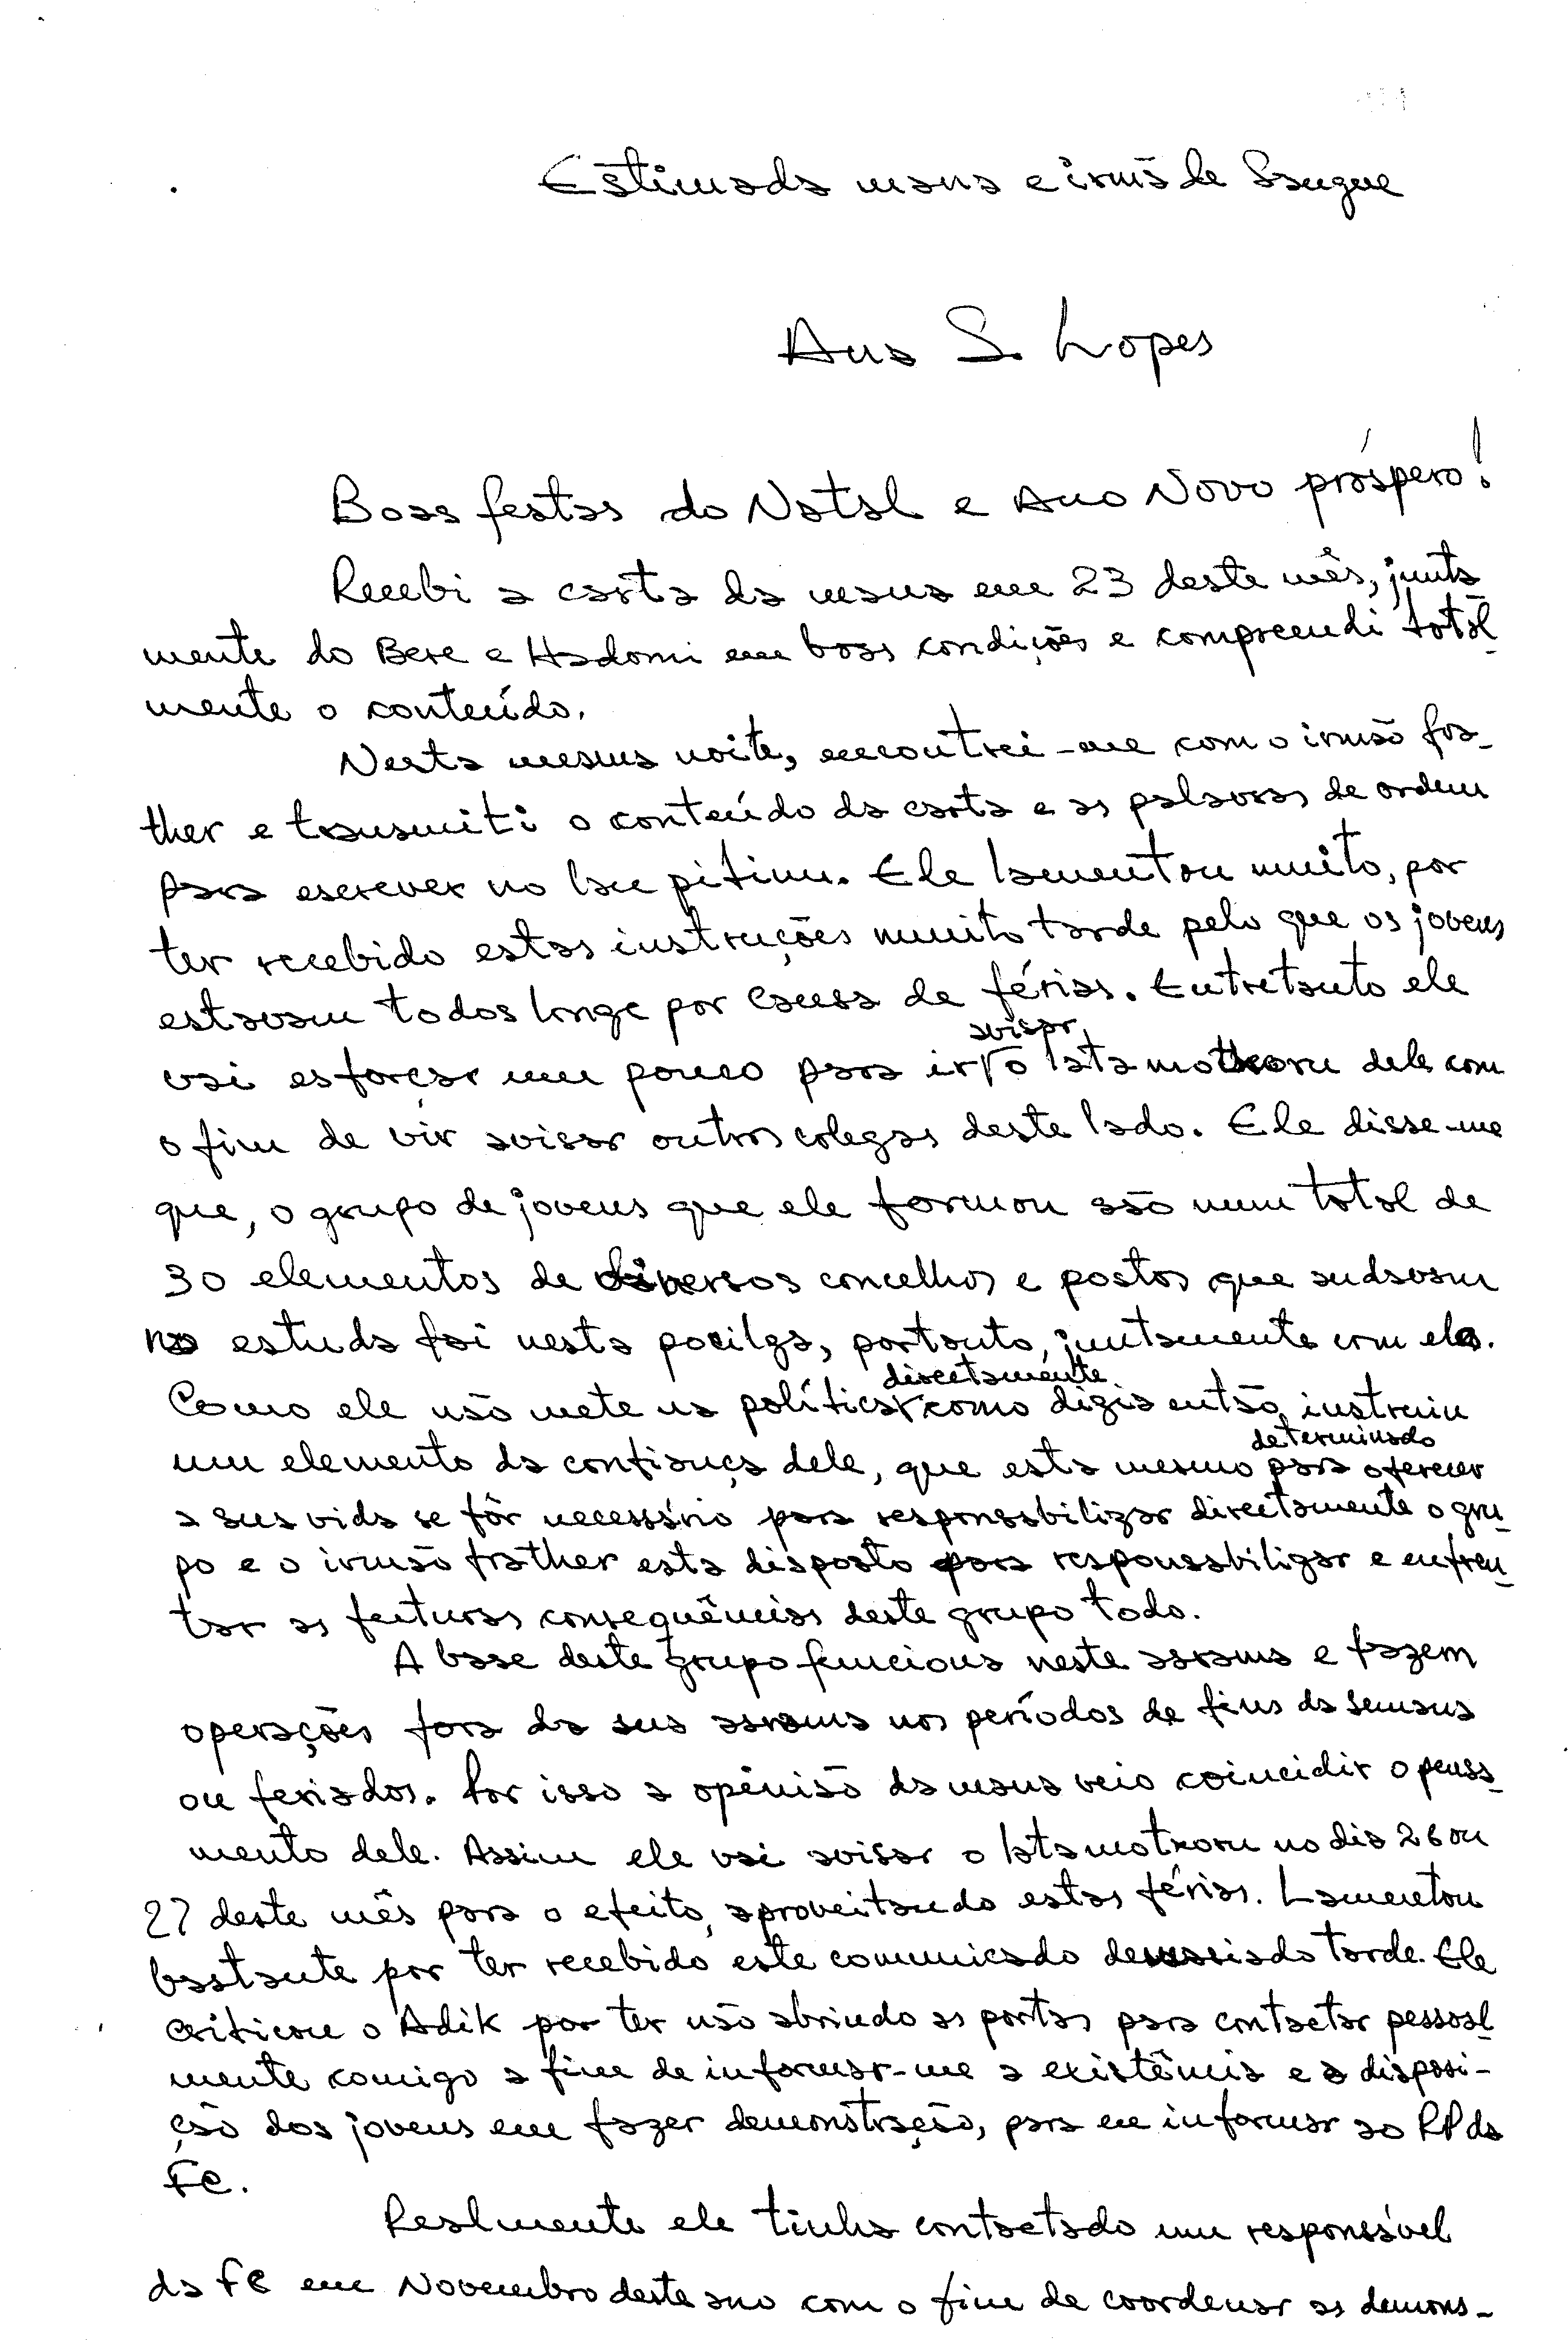 Estimada mana e irmã de Sangue
Ana S. Lopes
Boas festas do Natal e Ano Novo próspero!
Recebi a carta da mana em 23 deste mês, junta
mente do Bere e Hadomi em boas condições e compreendi total
mente o conteúdo.
Nesta mesma noite, encontrei-me com o irmão fra-
ther e transmiti o conteúdo da carta e as palavras de ordem
para escrever no lau pitinu. Ele lamentou muito, por
ter recebido estas instruções muito tarde pelo que os jovens
estavam todos longe por causa de férias. Entretanto ele
avisar
vai esforçar um pouco para ir o dele com
o fim de vir avisar outros colegas deste lado. Ele disse-me
que, o grupo de jovens que ele formou são num total de
30 elementos de diversos concelhos e postos que andavam
no estuda foi nesta pocilga, portanto, juntamente com ele.
directamente
Como ele não mete na política como dizia então, instruiu
determinado
um elemento da confiança dele, que esta mesmo para oferecer
a sua vida se fôr necessário para responsabilizar directamente o gru-
po e o irmão frather esta disposto para responsabilizar e enfren-
tar as futuras consequências deste grupo todo.
A base deste grupo funciona neste asrama e fazem
operações fora da sua asrama nos períodos de fins da semana
ou feriados. Por isso a opinião da mana veio coincidir o pensa-
mento dele. Assim ele vai avisar o no dia 26 ou
27 deste mês para o efeito, aproveitando estas férias. Lamentou
bastante por ter recebido este comunicado demasiado tarde. Ele
criticou o Adik por ter não abrindo as portas para contactar pessoal-
mente comigo a fim de informar-me a existência e a disposi-
ção dos jovens em fazer demonstração, para eu informar ao RP da
FC.
Realmente ele tinha contactado um responsável
da FC em Novembro deste ano com o fim de coordenar as demons-